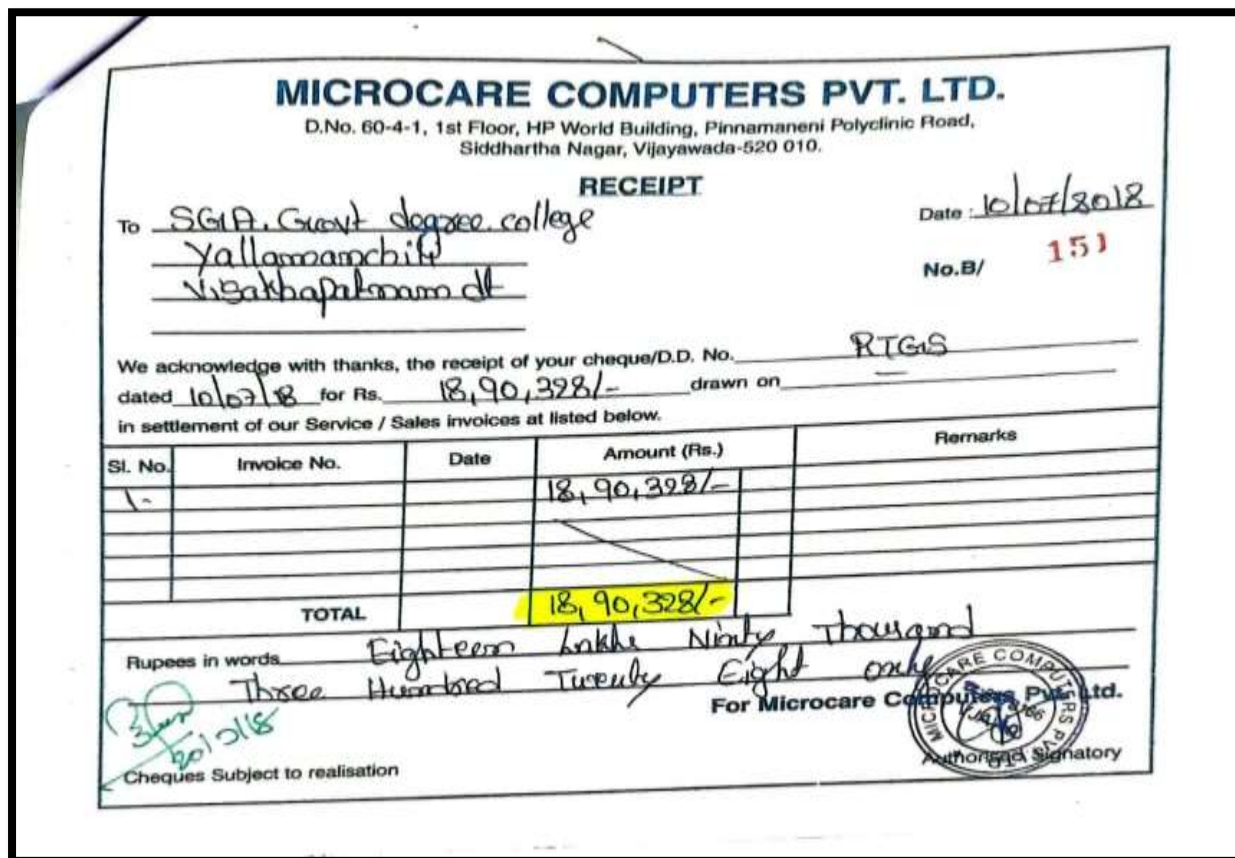 MICROCARE COMPUTERS PVT. LTD.
D.No. 60-4-1, 1st Floor, HP World Building, Pinnamaneni Polyclinic Road,
Siddhartha Nagar, Vijayawada-520 010.
RECEIPT
To SGA. Govt degree college
Date : 10/07/2018
Yallamanchili
No.B/ 151
Visakhapatnam dt
We acknowledge with thanks, the receipt of your cheque/D.D. No. RTGS
dated 10/07/18 for Rs. 18,90,328/- drawn on —
in settlement of our Service / Sales invoices at listed below.
Sl. No. Invoice No. Date Amount (Rs.) Remarks
1- 18,90,328/-
TOTAL 18,90,328/-
Rupees in words Eighteen Lakhs Ninty Thousand
Three Hundred Twenty Eight only
For Microcare Computers Pvt. Ltd.
MICROCARE COMPUTERS PVT. LTD
Authorised Signatory
Cheques Subject to realisation